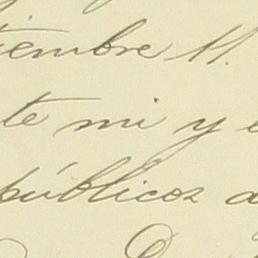 tiembre 11.
te mi y e
públicos a